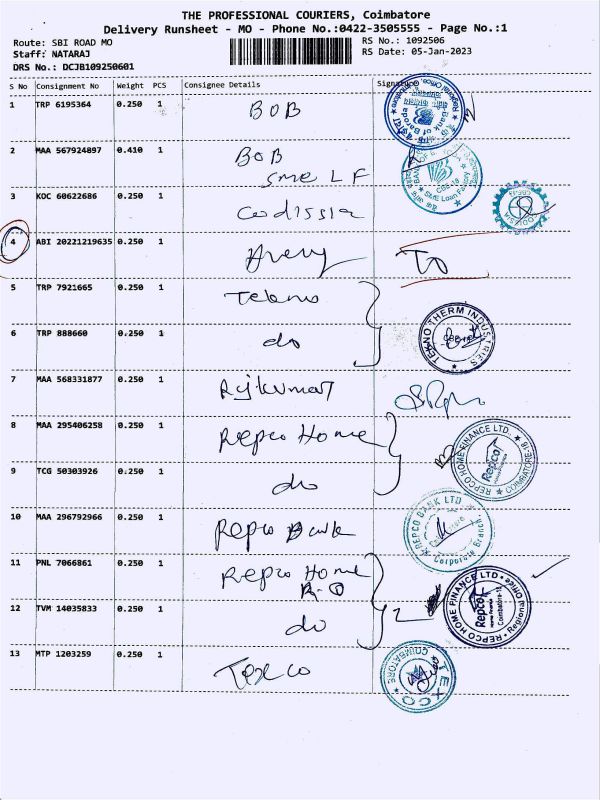 THE PROFESSIONAL COURIERS, Coimbatore
Delivery Runsheet - MO - Phone No.:0422-3505555 - Page No.:1
Route: SBI ROAD MO
Staff: NATARAJ
DRS No.: DCJB109250601
RS No.: 1092506
RS Date: 05-Jan-2023
S No Consignment No Weight PCS Consignee Details Signature
1 TRP 6195364 0.250 1 BOB
Bank of Baroda
2 MAA 567924897 0.410 1 BOB
SME LF
SME Loan Factory
3 KOC 60622686 0.250 1 Codissia
4 ABI 20221219635 0.250 1 Avery TO
5 TRP 7921665 0.250 1 Tekno
6 TRP 888660 0.250 1 do
TEKNO THERM INDUSTRIES
7 MAA 568331877 0.250 1 Rajkumar
8 MAA 295406258 0.250 1 Repco Home
REPCO HOME FINANCE LTD.
Repco
COIMBATORE-18
9 TCG 50303926 0.250 1 do
10 MAA 296792966 0.250 1 Repco Bank
REPCO BANK LTD
Corporate Branch
11 PNL 7066861 0.250 1 Repco Home
R-O
12 TVM 14035833 0.250 1 do 2
REPCO HOME FINANCE LTD
Repco
Coimbatore-18
Regional Office
13 MTP 1203259 0.250 1 Texco
TEXCO
COIMBATORE